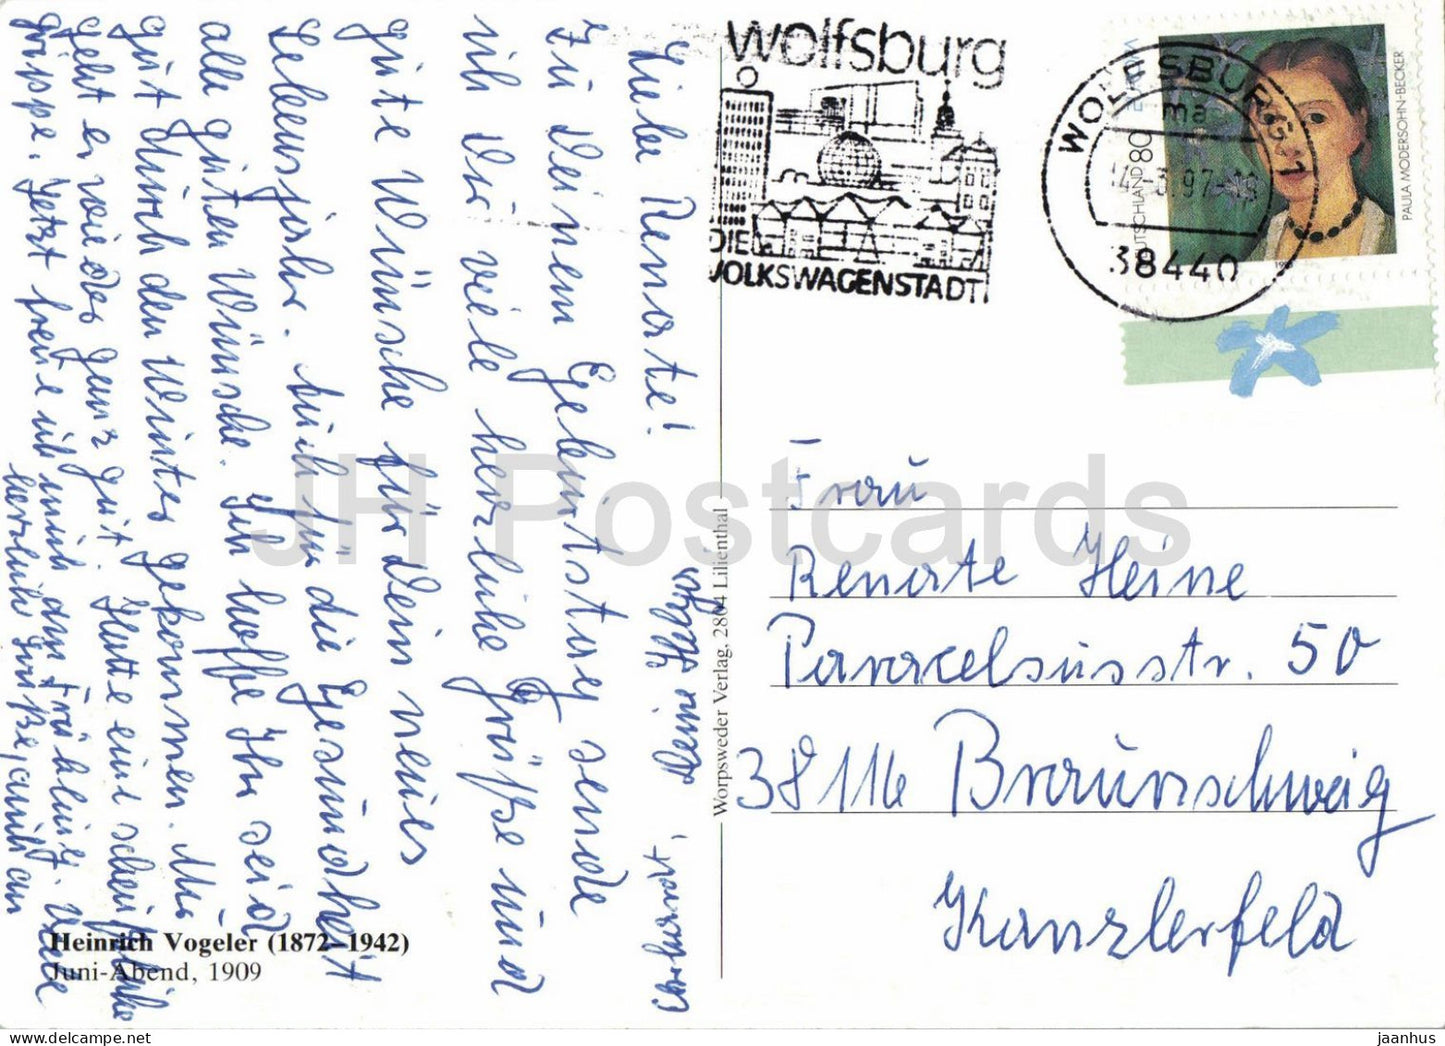 Liebe Renate!
Zu Deinem Geburtstag sende
ich Dir viele herzliche Grüße und
gute Wünsche für Dein neues
Lebensjahr. Auch für die Gesundheit
alle guten Wünsche. Ich hoffe Ihr seid
gut durch den Winter gekommen. Mir
geht es wieder ganz gut. Hatte eine scheußliche
Grippe. Jetzt freue ich mich auf den Frühling. Viele
herzliche Grüße, auch an
Deine
Heinrich Vogeler (1872–1942)
Juni-Abend, 1909
Worpsweder Verlag, 2804 Lilienthal
wolfsburg
DIE
VOLKSWAGENSTADT
WOLFSBURG 1
ma
-3.97-
38440
DEUTSCHLAND 80
EUROPA
PAULA MODERSOHN-BECKER
Frau
Renate Heine
Paracelsusstr. 50
38116 Braunschweig
Kanzlerfeld
JH Postcards
jaanhus